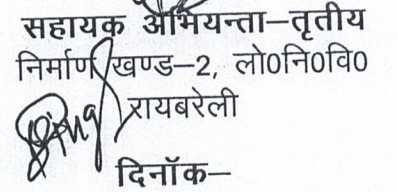 सहायक अभियन्ता–तृतीय
निर्माण खण्ड–2, लो0नि0वि0
रायबरेली
दिनॉक–